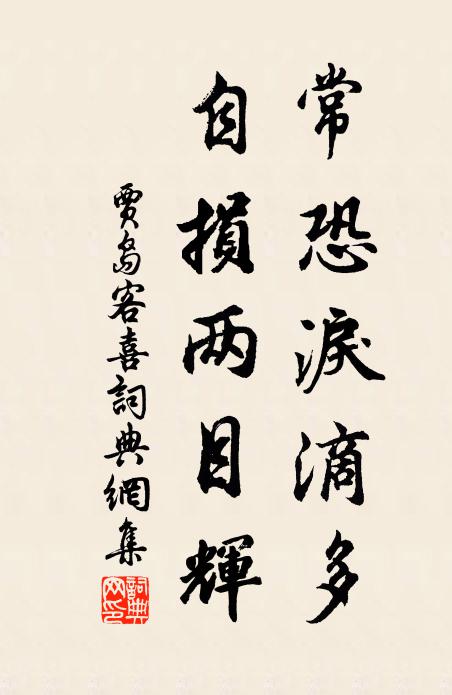 常恐淚滴多
自損两目輝
賈島客喜詞典網集
詞典
网印